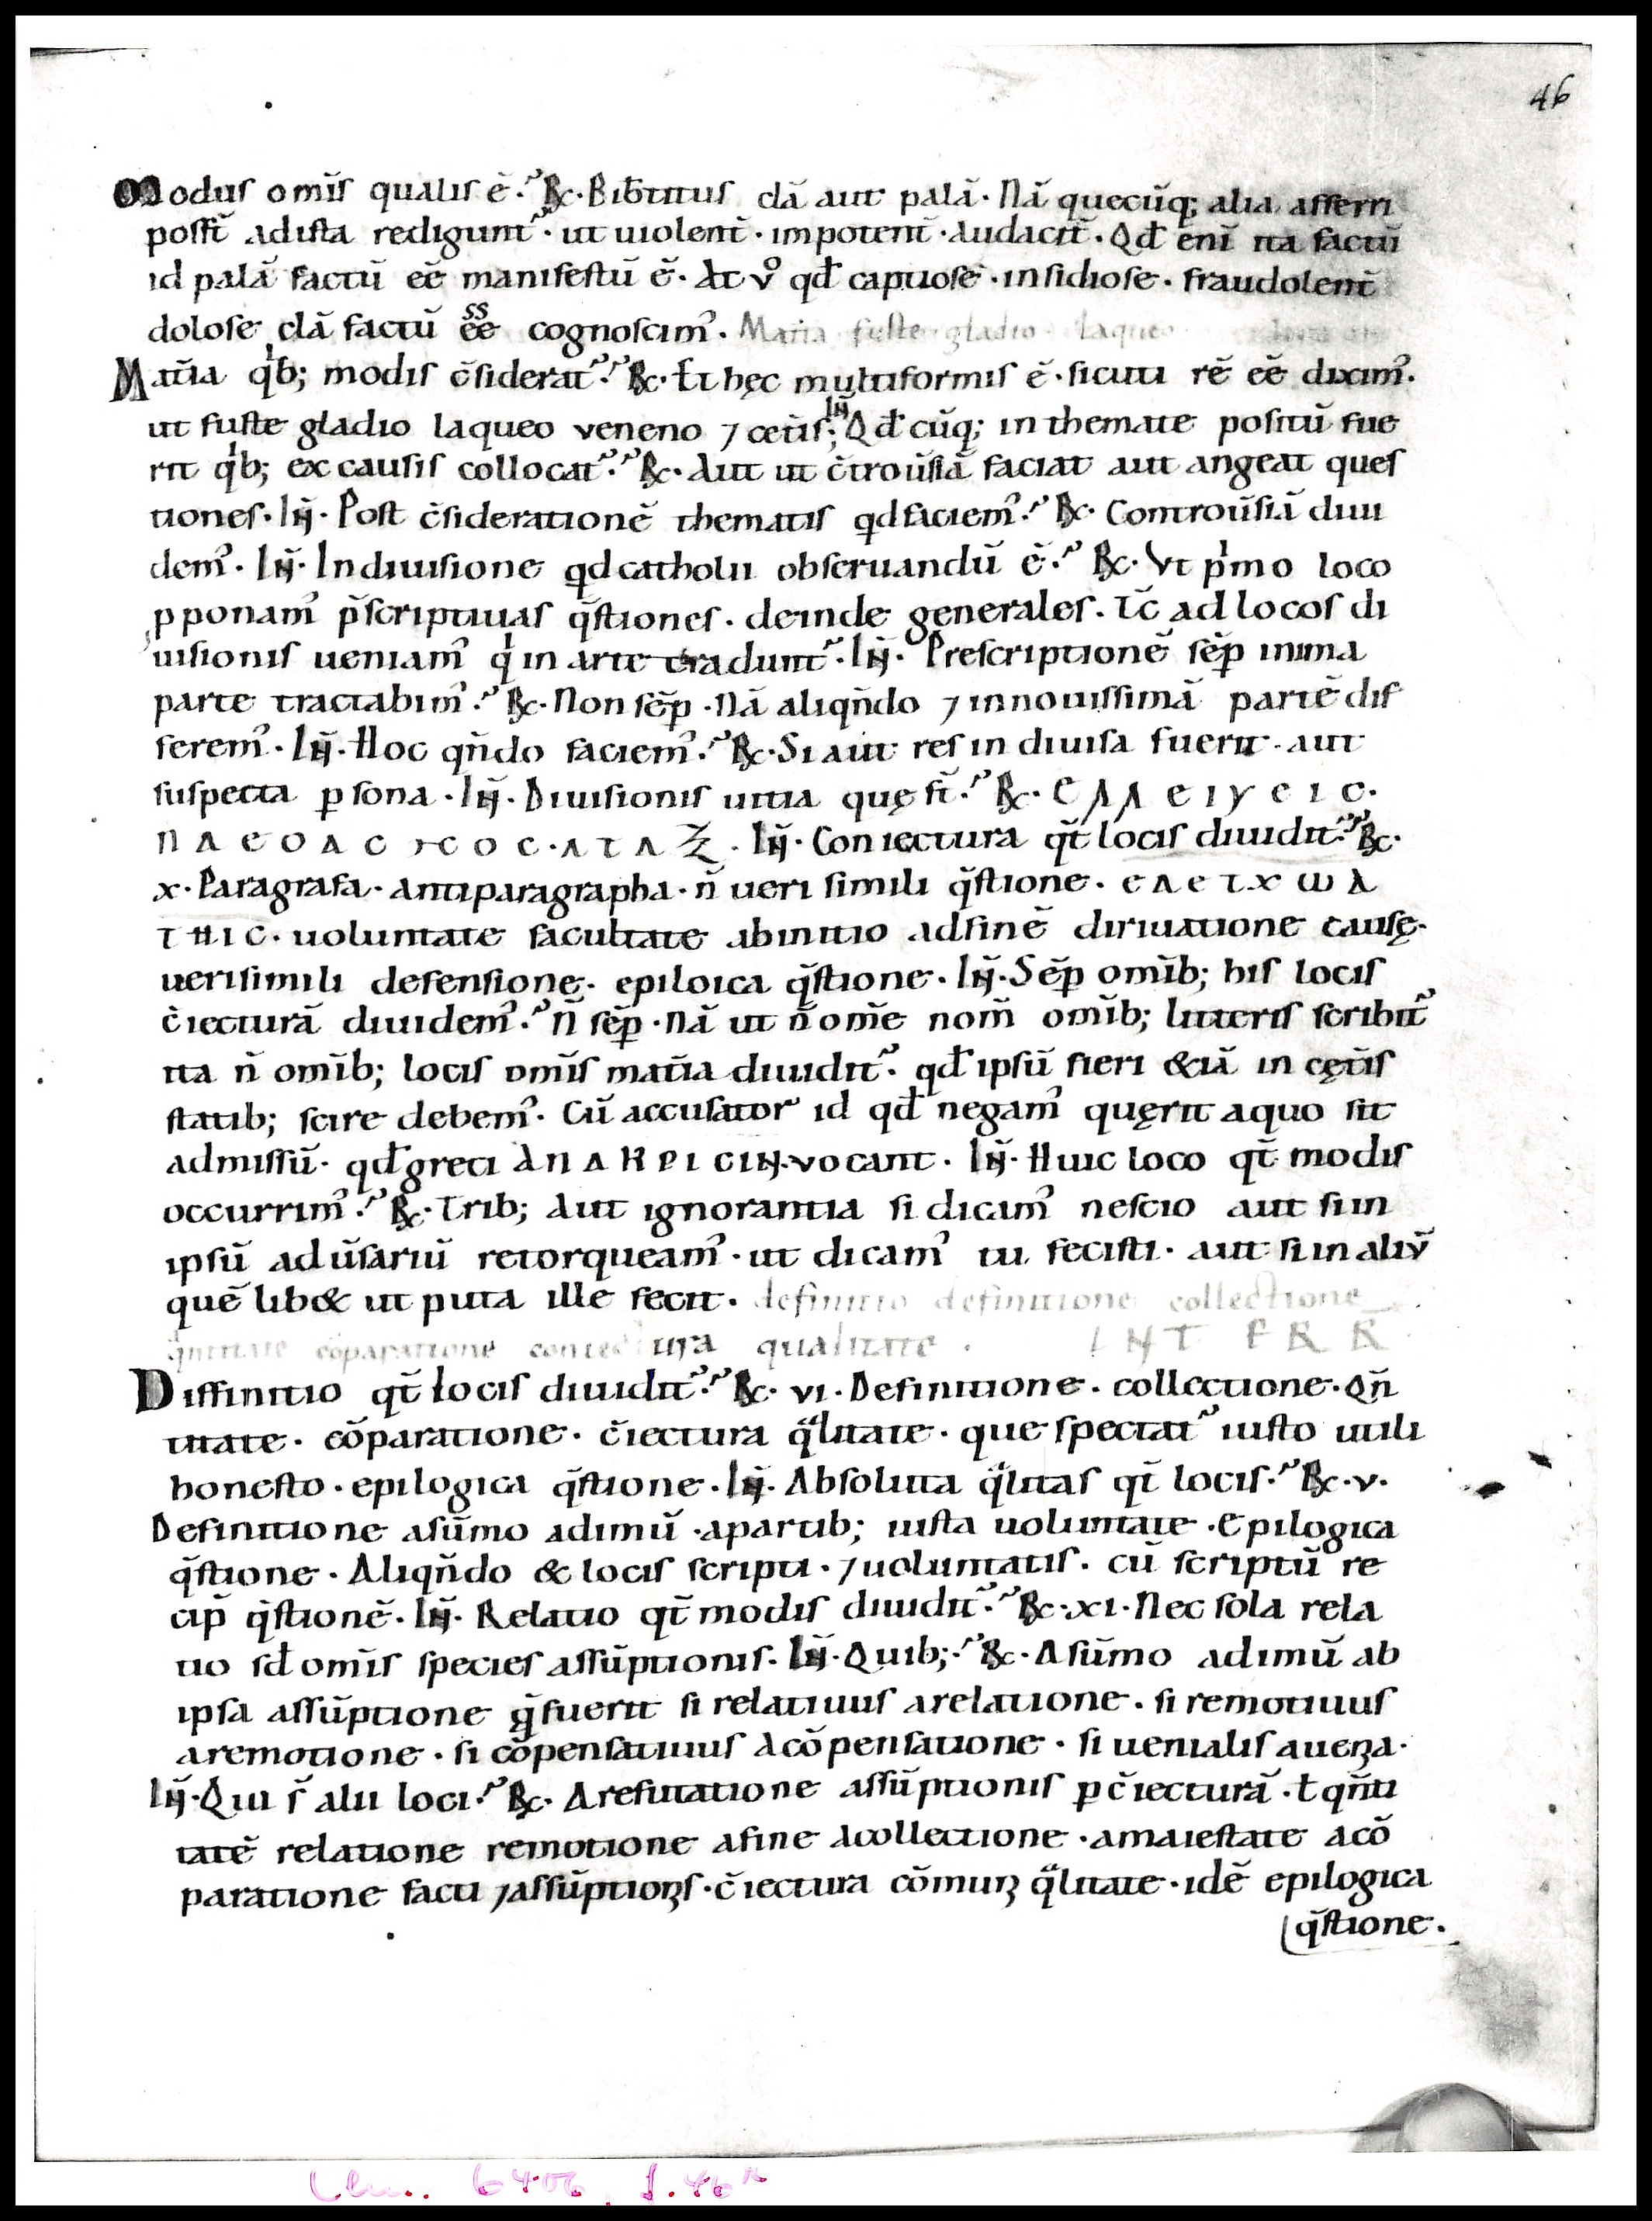 46
Modus om̄is qualis ē. R̷c. Bib̄titus clā aut palā. Nā quecūq; alia afferri
posst̄ adista redigunt᷑. ut uiolent̄. impotent̄. Audacit̄. Qd̄ enī ita factū
id palā factū eē manifestū ē. At v̊ qd̄ captiose. insidiose. fraudolent̄
dolose clā factū eē cognoscim᾽. Mat̄ia fuste gladio laqueo
ss
Mat̄ia qͥb; modis c̄siderat᷑. R̷c. Et hęc multiformis ē. sicuti rē eē dixim᾽.
ut fuste gladio laqueo veneno ⁊ cet̄is; IN̄ Qd̄ cūq; in themate positū fue
rit qͥb; ex causis collocat᷑. R̷c. Aut ut c̄troūsiā faciat aut angeat ques
tiones. IN̄. Post c̄siderationē thematis qd faciem᾽. R̷c. Controūsiā diui
dem᾽. IN̄. In diuisione qd catholii obseruandū ē. R̷c. Vt pͥmo loco
p ponam᾽ p̄scriptiuas q̄stiones. deinde generales. Tc̄ ad locos di
uisionis ueniam᾽ qͥ in arte tradunt᷑. IN̄. Prescriptionē sēp inima
parte tractabim᾽. R̷c. Non sēp. Nā aliqn̄do ⁊ innouissimā partē dif
ferem᾽. IN̄. Hoc qn̄do faciem᾽. R̷c. Si aut res in diuisa fuerit. aut
suspecta p sona. IN̄. Diuisionis uitia quę st̄. R̷c. Ε Λ Λ Ε Ι Υ Ε Ι C.
Π Λ Ε Ο Λ C Ͱ C Ο C. Λ Τ Λ Ξ. IN̄. Coniectura qt̄ locis diuidit᷑. R̷c.
x. Paragrafa. antiparagrapha. n̄ ueri simili q̄stione. Ε Λ Ε Τ. Χ Ω Λ
Τ Η Ι C. uoluntate facultate abinitio adfinē diriuatione causę.
uerisimili defensione. epiloica q̄stione. IN̄. Sēp omīb; his locis
c̄iecturā diuidem᾽. N̄ sēp. Nā ut n̄ om̄e nom̄ omīb; litteris scribit᷑
ita n̄ omīb; locis om̄is mat̄ia diuidit᷑. qd̄ ipsū fieri &iā in cęt̄is
statib; scire debem᾽. Cū accusator id qd̄ negam᾽ quęrit aquo sit
admissū. qd̄ greci Α Π Λ Κ Ρ Ι C Ι Ν. vocant. IN̄. Huic loco qt̄ modis
occurrim᾽. R̷c. Trib; Aut ignorantia si dicam᾽ nescio aut si in
ipsū adūsariū retorqueam᾽. ut dicam᾽ tu fecisti. aut si in aliv̄
quē lib& ut puta ille fecit. definitio definitione collectione
q̄ntitate cōparatione coniectura qualitate. INT F R R
Diffinitio qt̄ locis diuidit᷑. R̷c. vi. Definitione. collectione. Qn̄
titate. cōparatione. c̄iectura qᷓlitate. que spectat᷑ iusto utili
honesto. epilogica q̄stione. IN̄. Absoluta qᷓlitas qt̄ locis. R̷c. v.
Definitione asūmo adimū. apartib; iusta uoluntate. Epilogica
q̄stione. Aliqn̄do & locis scripti. ⁊ uoluntatis. cū scriptū re
cip̄ q̄stionē. IN̄. Relatio qt̄ modis diuidit᷑. R̷c. xi. Nec sola rela
tio sd̄ om̄is species assūptionis. IN̄. Quib;. R̷c. Asūmo adimū ab
ipsa assūptione q̄ fuerit si relatiuus arelatione. si remotiuus
aremotione. si cōpensatiuus Acōpensatione. si uenialis aueꝫa.
IN̄. Qui s̄ alii loci. R̷c. A refutatione assūptionis p c̄iecturā. ł qn̄ti
tatē relatione remotione afine Acollectione. amaiestate acō
paratione facti ⁊ assūptioꝫs. c̄iectura cōmuꝫ qᷓlitate. idē epilogica
q̄stione.
Clm. 6406, f. 46r